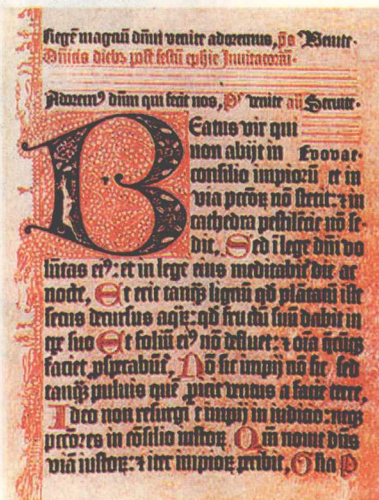 Regē magnū dn̄m venite adoremus, ps̄ Venite.
Dn̄icis diebꝰ post festū ephīe Inuitatoriū.
Adoremꝰ dn̄m qui fecit nos, Ps̄ venite añ Seruite.
Beatus vir qui
non abijt in Evovae
consilio impiorū et in
via pctōꝝ nō stetit: ⁊ in
cathedra pestilētie nō se-
dit, Sed ī lege dn̄i vo
lūtas eiꝰ: et in lege eius meditabit̄ die ac
nocte, Et erit tanqꝫ lignū qd̄ plātatū ist
secus decursus aqꝝ: qd̄ fructū suū dabit in
tp̄e suo Et foliū eiꝰ nō defluet: ⁊ oīa q̄cūqꝫ
faciet, ꝓsperabūt̄, Nō sic impij nō sic sed
tanqꝫ puluis quē ꝓicit ventus a facie terre,
Ideo non resurgūt impij in iudicio: neqꝫ
pctōres in cōsilio iustoꝝ Qm̄ nouit dn̄s
viā iustoꝝ: ⁊ iter impioꝝ peribit, Glīa P